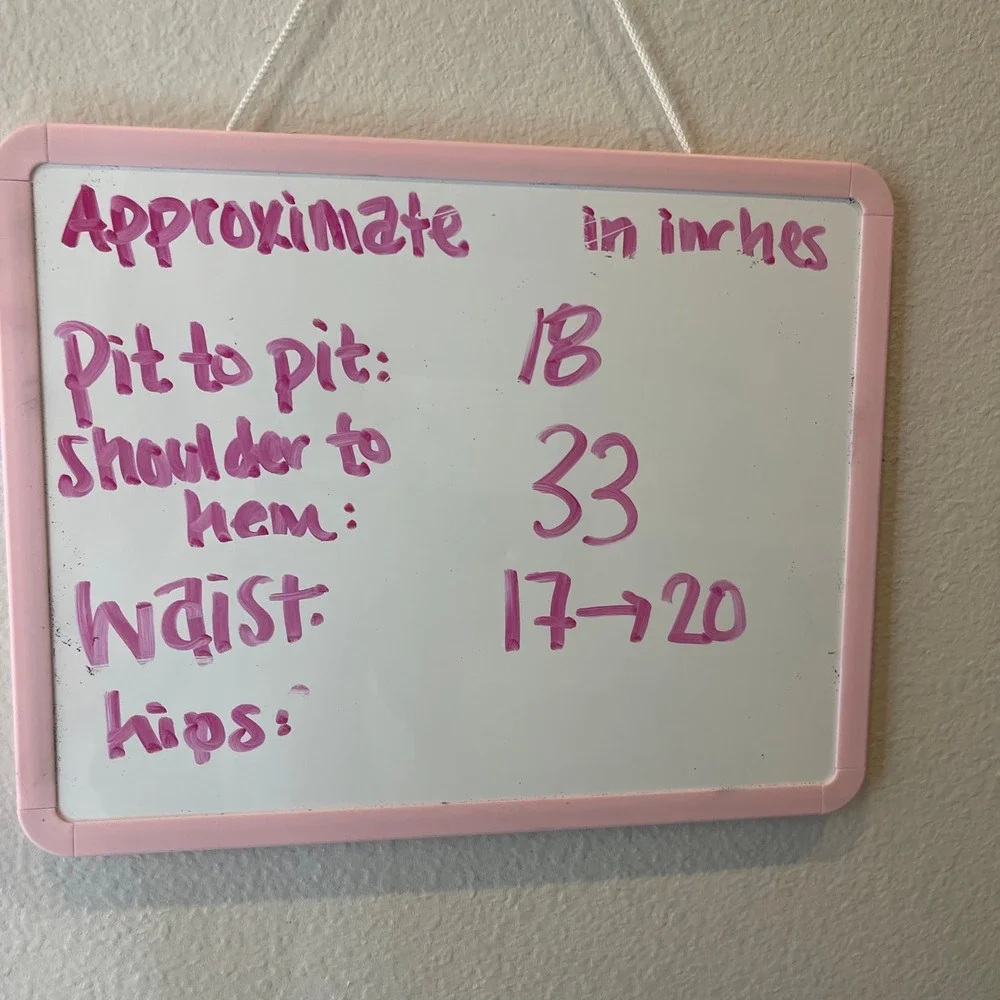 Approximate in inches
Pit to pit: 18
shoulder to
hem: 33
Waist: 17→20
hips: